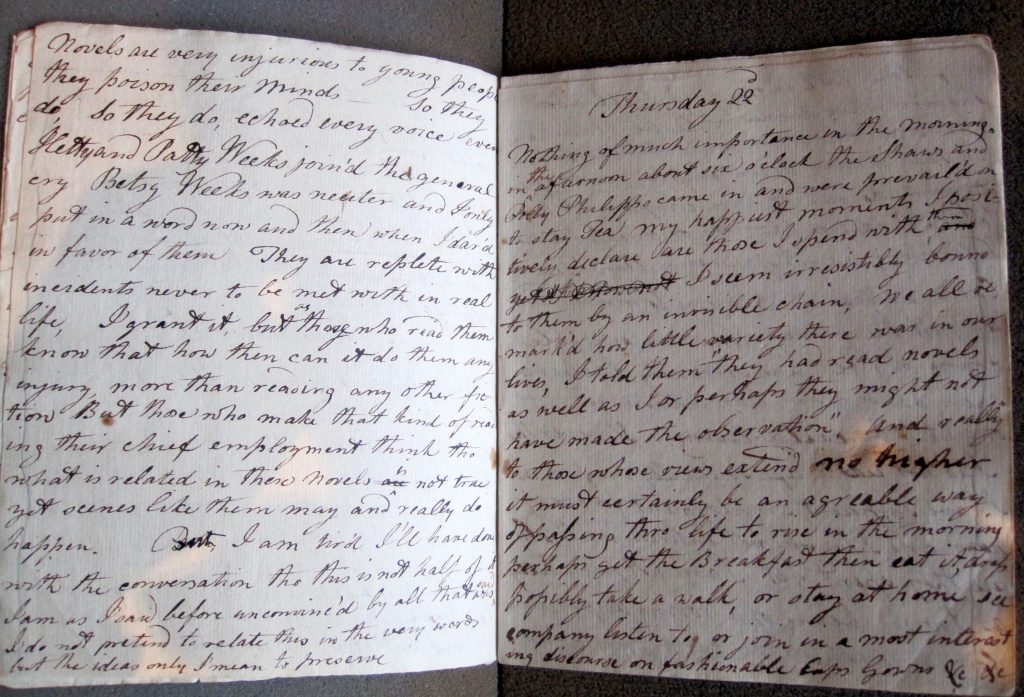 Novels are very injurious to young people
they poison their minds — so they
do, So they do, echoed every voice even
Hetty and Patty Weeks join'd the general
cry Betsy Weeks was neuter and I only
put in a word now and then when I dar'd
in favor of them They are replete with
incidents never to be met with in real
life, I grant it, but "those who read them
know that how then can it do them any
injury more than reading any other fic
tion "But those who make that kind of read
ing their chief employment think tho
what is related in these Novels are not true
yet scenes like them may and really do
happen. But, I am tir'd I'll have done
with the conversation tho this is not half of it
I am as I said before unconvinc'd by all that was said
I do not pretend to relate this in the very words
but the ideas only I mean to preserve
Thursday 22d
Nothing of much importance in the morning.
in the afternoon about six o'clock the Shaws and
Polly Philipps came in and were prevail'd on
to stay Tea my happiest moments I posi-
tively declare are those I spend with them and
yet I seem irresistibly bound
to them by an invisible chain, We all re
mark'd how little variety there was in our
lives, I told them "they had read novels
as well as I or perhaps they might not
have made the observation" And really
to those whose views extend no higher
it must certainly be an agreable way
of passing thro life to rise in the morning
perhaps get the Breakfast then eat it, dress
possibly take a walk, or stay at home see
company listen to, or join in a most interest
ing discourse on fashionable Caps Gowns &c &c